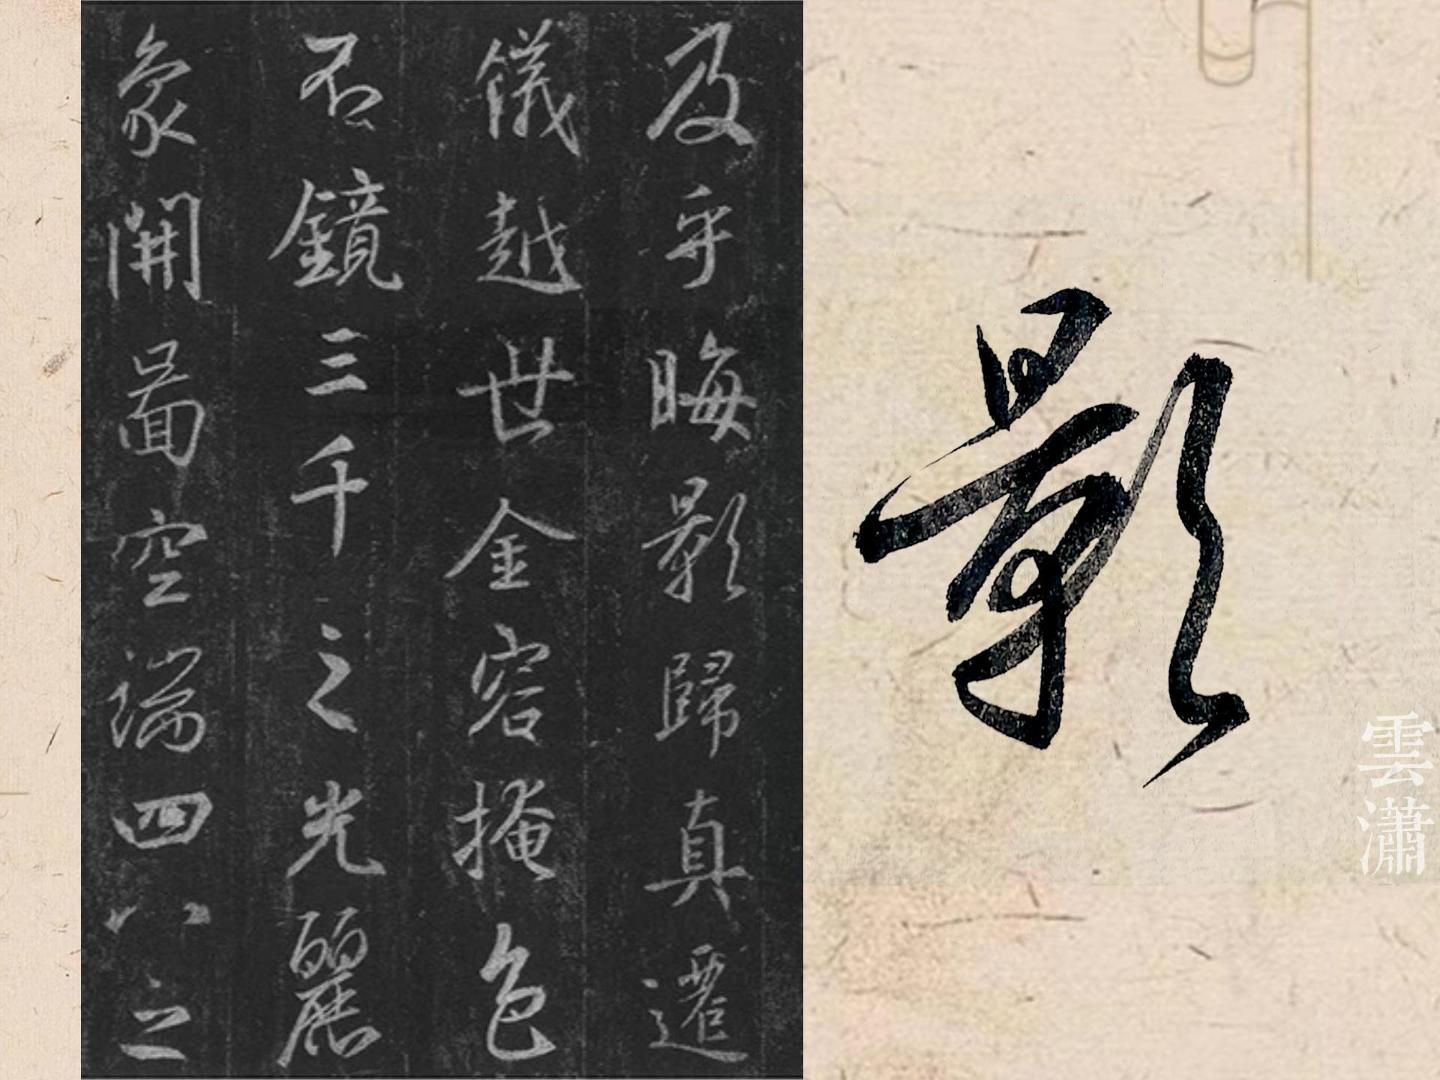 及乎晦影歸真遷
儀越世金容掩色
不鏡三千之光麗
象開圖空端四八之
影
雲瀟